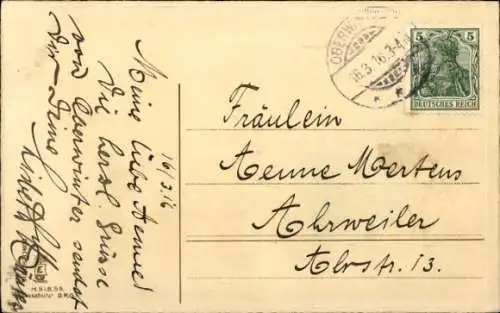 16/3.16
Meine liebe Aenne!
Die herzl. Grüsse
von Oberwinter sendet
Dir Deine
OBERWINTER
16.3.16.3-4
5 5
DEUTSCHES REICH
Fräulein
Aenne Mertens
Ahrweiler
Ahrstr. 13.